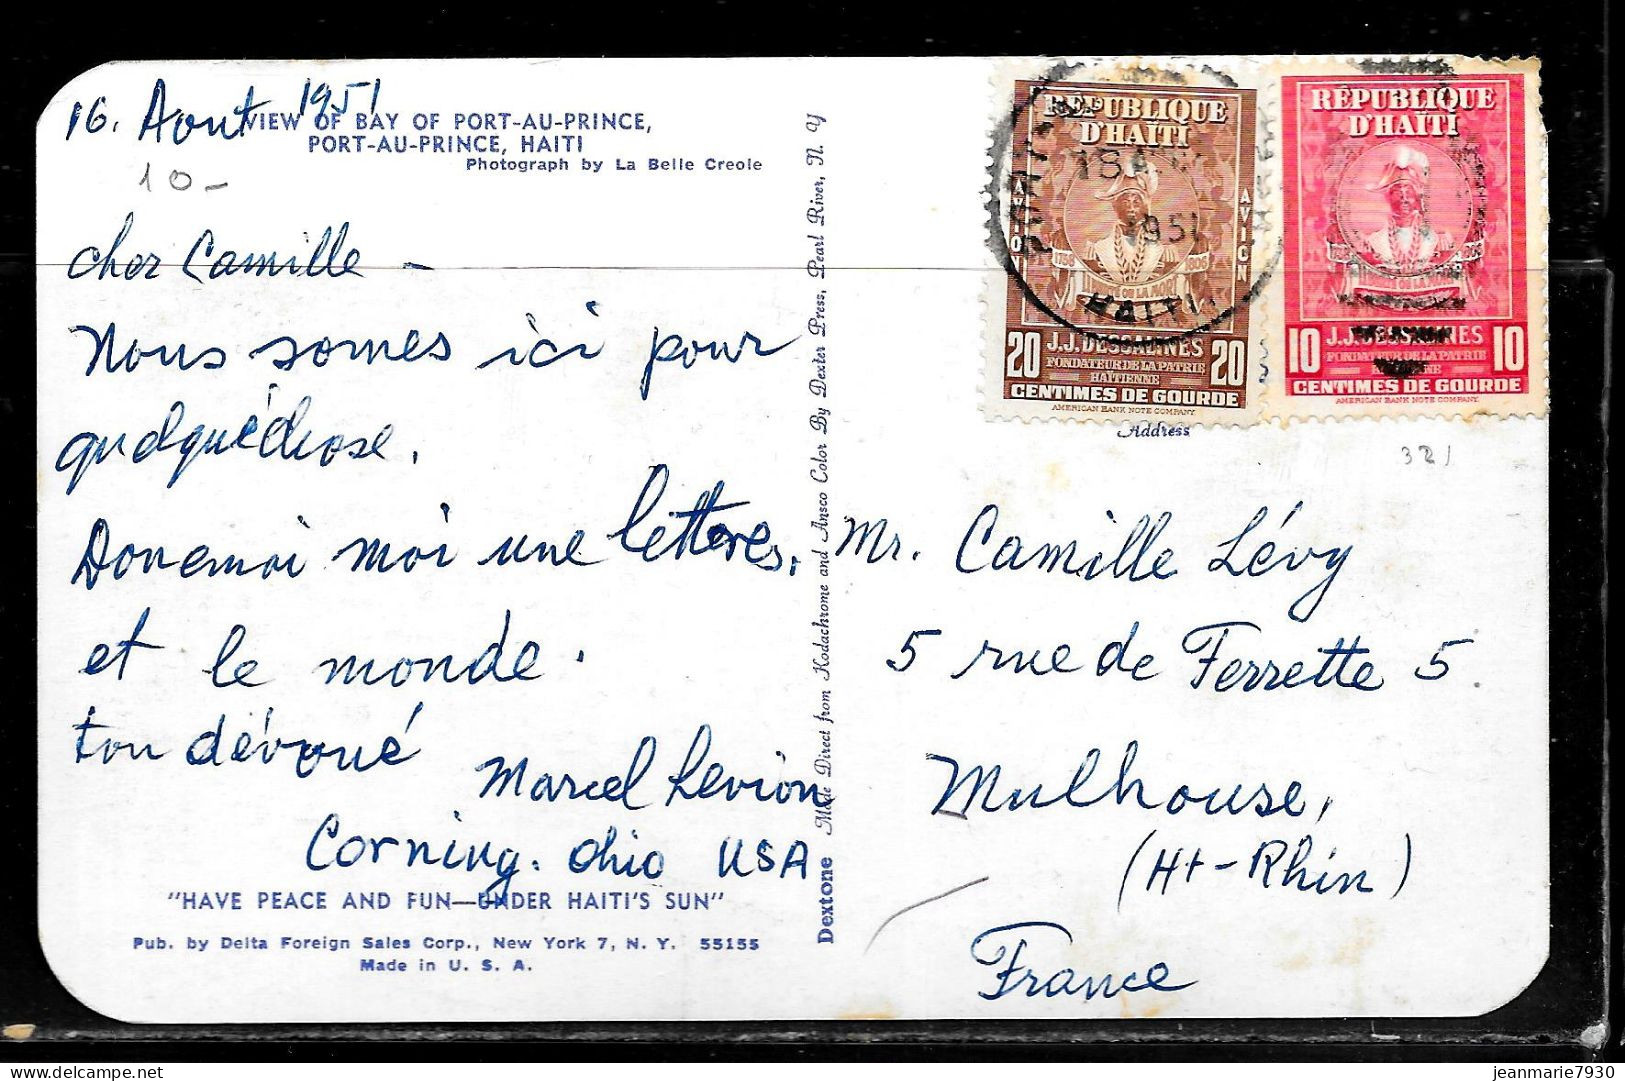 16. Aout 1951
VIEW OF BAY OF PORT-AU-PRINCE,
PORT-AU-PRINCE, HAITI
Photograph by La Belle Creole
10-
cher Camille -
Nous somes ici pour
quelquechose.
Donemoi moi une letteres,
et le monde.
ton dévoué
Marcel Levion
Corning. Ohio USA
"HAVE PEACE AND FUN—UNDER HAITI'S SUN"
Pub. by Delta Foreign Sales Corp., New York 7, N. Y. 55155
Made in U. S. A.
Dextone Made Direct from Kodachrome and Ansco Color By Dexter Press, Pearl River, N. Y
RÉPUBLIQUE
D'HAÏTI
AVION
AVION
LA MORT
20 J.J. DESSALINES 20
FONDATEUR DE LA PATRIE
HAÏTIENNE
CENTIMES DE GOURDE
AMERICAN BANK NOTE COMPANY
HAITI
RÉPUBLIQUE
D'HAÏTI
10 J.J. DESSALINES 10
FONDATEUR DE LA PATRIE
CENTIMES DE GOURDE
AMERICAN BANK NOTE COMPANY
Address
321
Mr. Camille Lévy
5 rue de Ferrette 5.
Mulhouse,
(Ht-Rhin)
France
jeanmarie7930